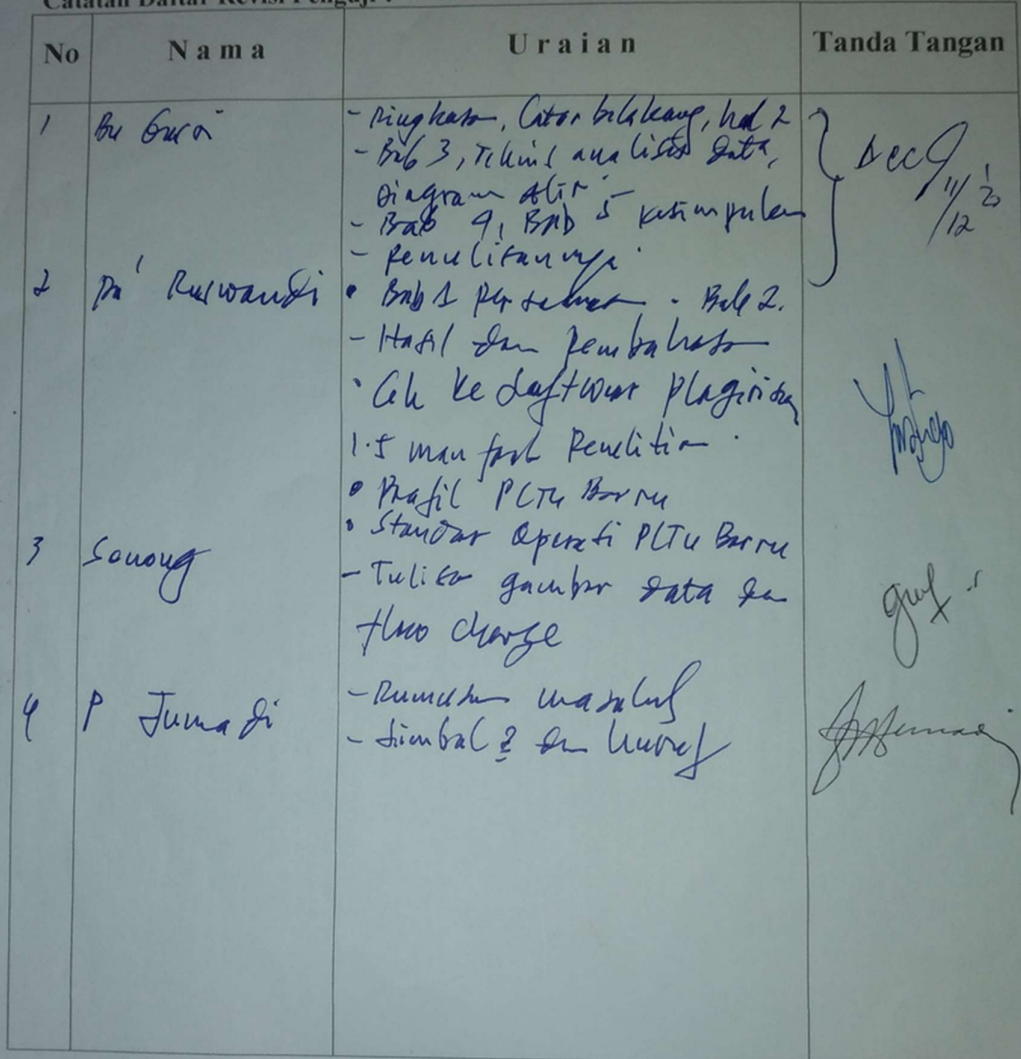 Catatan Daftar Revisi Penguji :
No Nama Uraian Tanda Tangan
1 Bu - Ringkasan, Latar belakang, hal 2
- Bab 3, Teknis analisis data,
Diagram Alir
- Bab 4, Bab 5 kesimpulan
- Penulisannya
2 Pa' Ruswandi • Bab 1 - Bab 2.
- Hasil dan Pembahasan
• Cek ke software plagirism
1.5 manfaat Penelitian
• Profil PLTU Barru
• Standar Operasi PLTU Barru
3 Sonong
- Tulisan gambar data dan
flow
4 P Jumadi - Rumusan masalah
- Simbol2 dan huruf
Acc
11/12